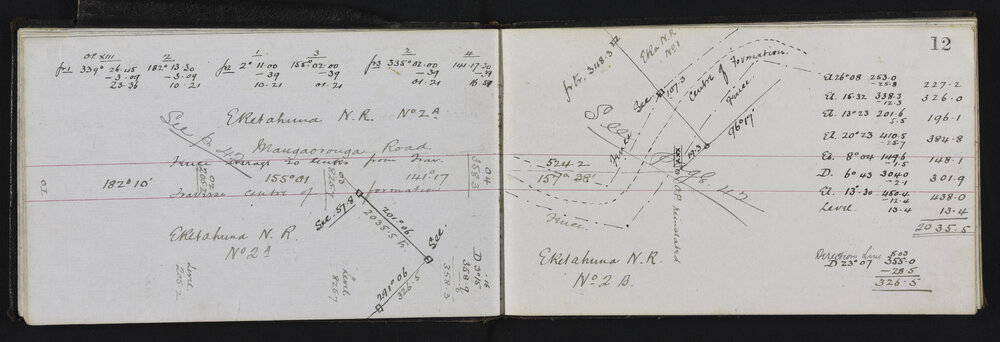 02 XIII 2 1 3 2 4
fr1 339° 26.45 182° 13.30 fr2 2° 11.00 155° 02.00 fr3 335° 02.00 141.17.30
-3.09 -3.09 -39 -39 -39 -39
23.36 10.21 10.21 01.21 01.21 16.51
Eketahuna N.R. No 2A
See p. 42
Mangaoronga Road
fence average 20 links from Trav.
182° 10' 155°01 141°17
Traverse centre of formation
Eketahuna N.R.
No 2A
See 57.8
201° 06
2035.5
See
291° 06
326.5
Level
225.2
Level
825.7
D 3°15
358.9
.16
358.3
04
358.3
12
fr tr. 348.3 XIII
Eka N.R
No 1
See
107.3
Centre of Formation
Fence
96° 17'
19.3
XXX
Fence
See p 42
524.2
157° 38'
Fence
O.P. reinstated
Eketahuna N.R.
No 2B.
El 26°08 253.0
-25.8 227.2
El. 15.32 338.3
-12.3 326.0
El. 13°23 201.6
5.5 196.1
El. 20°23 410.5
-25.7 384.8
El. 8°04 149.6
-1.5 148.1
D. 6°43 304.0
-2.1 301.9
El. 13.30 450.4
-12.4 438.0
Level 13.4 13.4
2035.5
Direction Line 8.03
D 23°07 355.0
-28.5
326.5